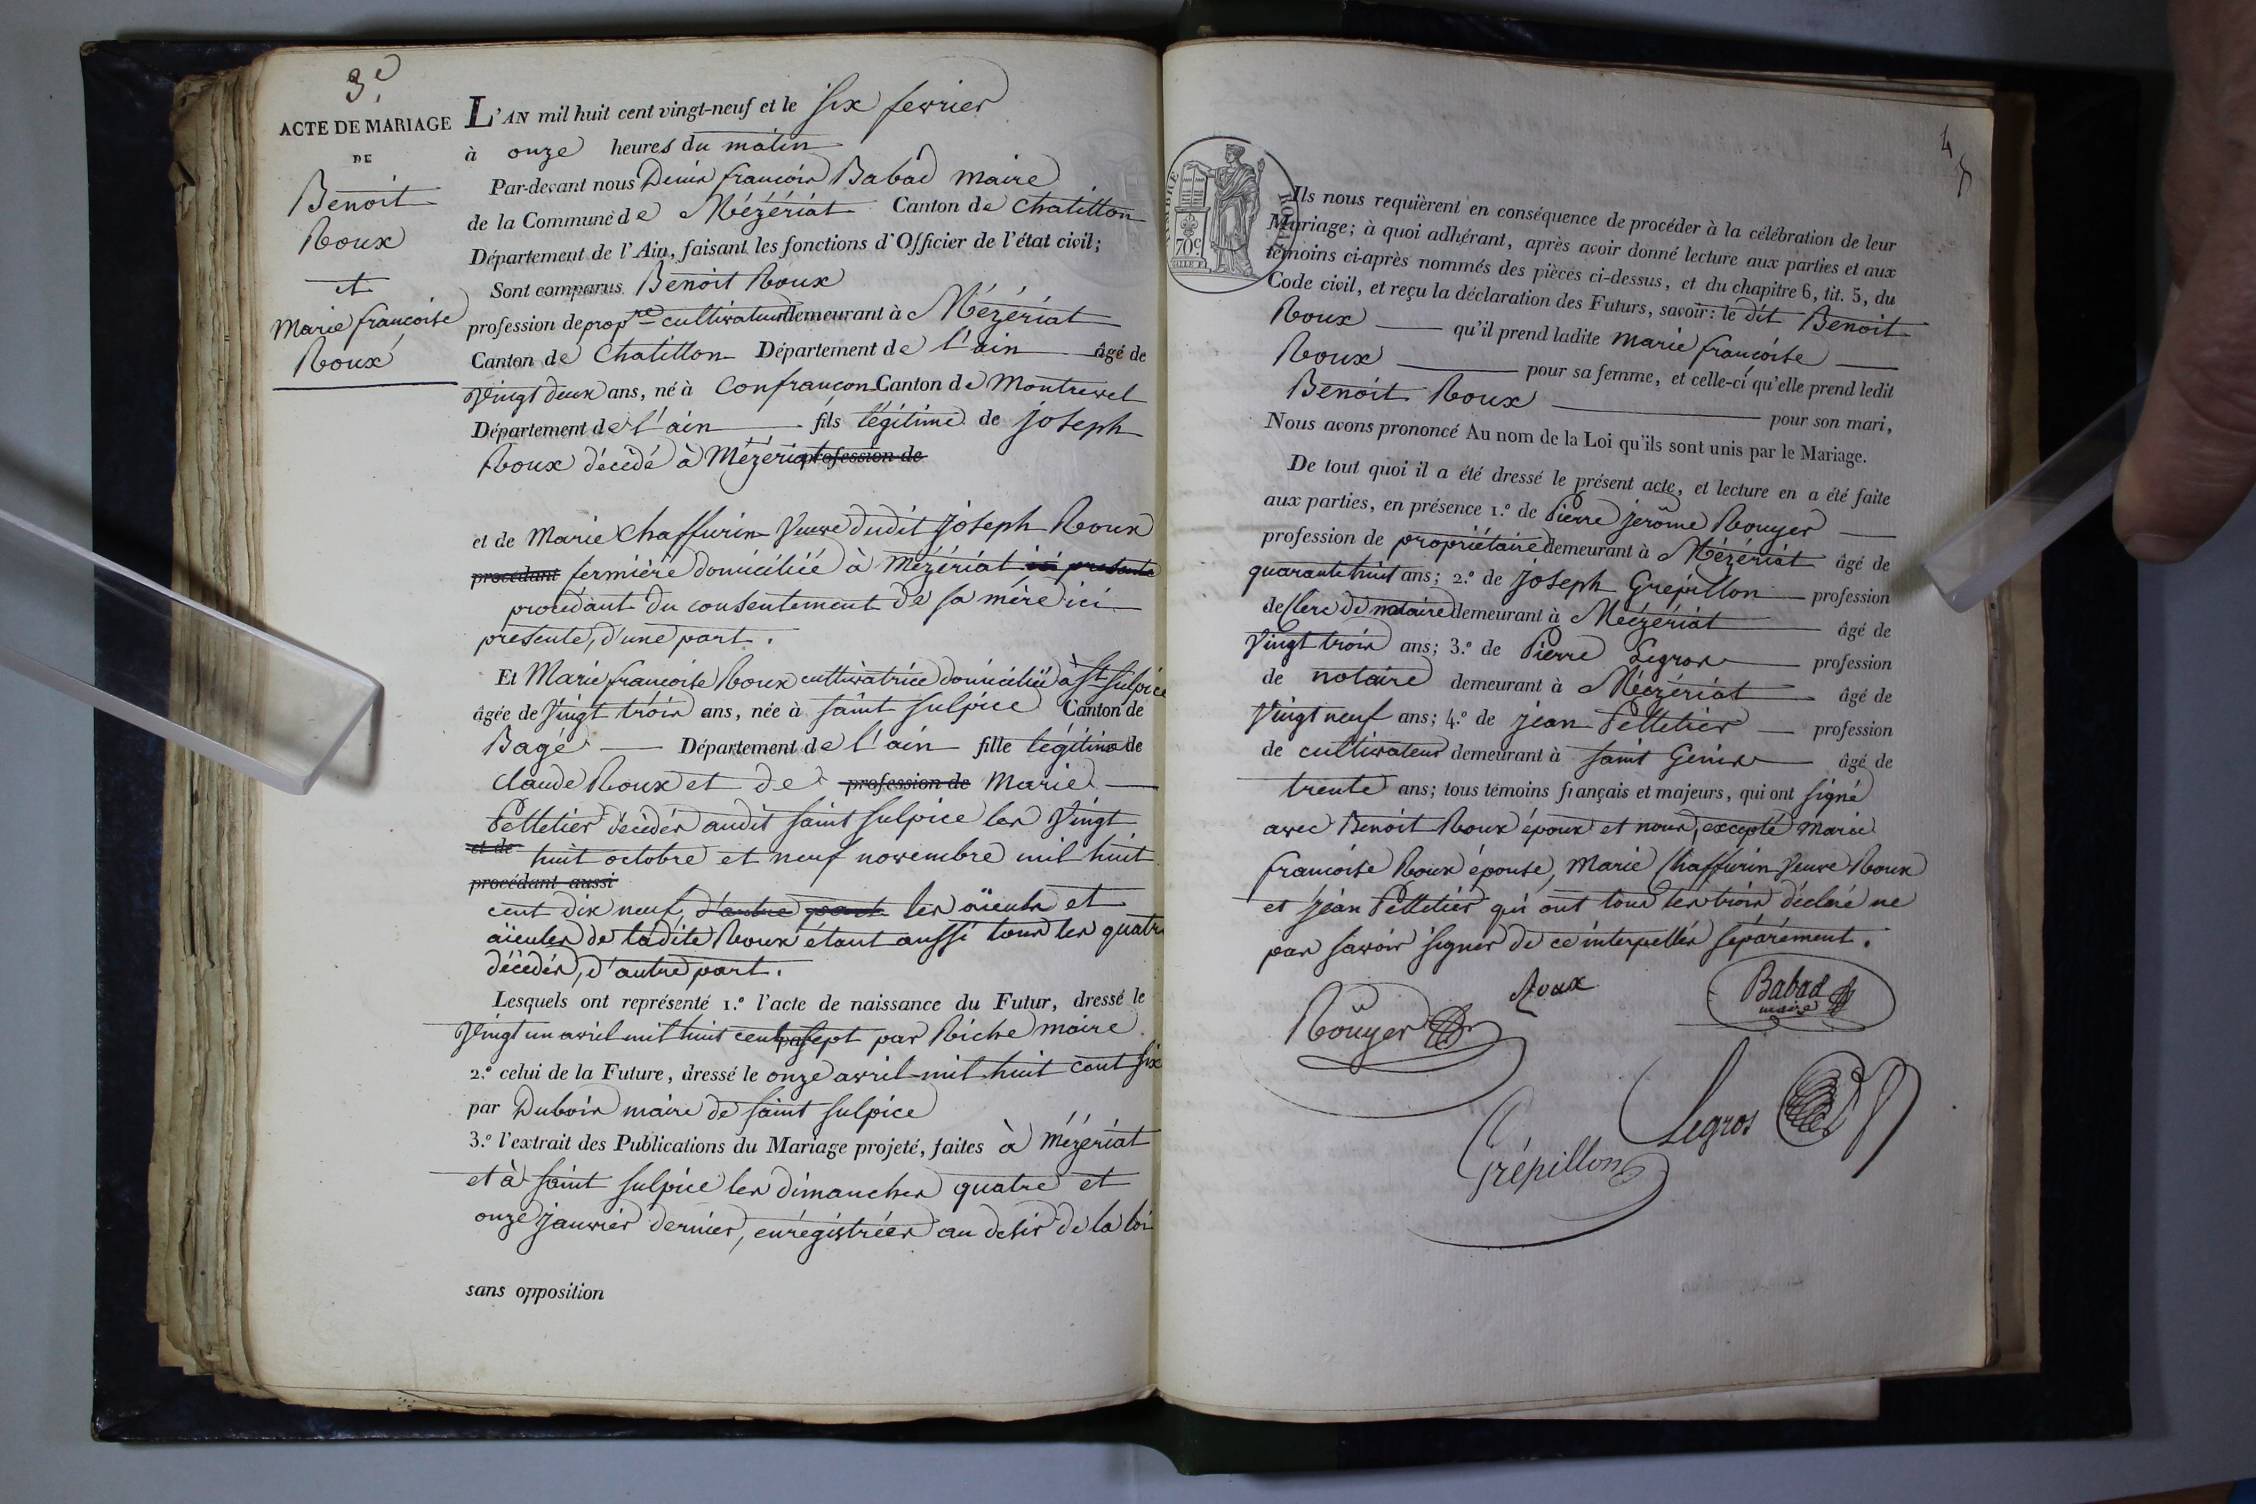 3.e
ACTE DE MARIAGE
DE
Benoit
Roux
et
Marie françoise
Roux
L'AN mil huit cent vingt-neuf et le six fevrier
à onze heures du matin
Par-devant nous Denis françois Babad maire
de la Commune de Mézériat Canton de chatillon
Département de l'Ain, faisant les fonctions d'Officier de l'état civil;
Sont comparus Benoit Roux
profession de propre cultivateur demeurant à Mézériat
Canton de Chatillon Département de l'ain âgé de
Vingt deux ans, né à Confrançon Canton de Montrevel
Département de l'ain fils légitime de joseph
Roux décédé à Mézériat profession de
et de Marie Chaffurin Veuve dudit joseph Roux
procédant fermière domiciliée à Mézériat ici presente
procédant du consentement de sa mère ici
presente, d'une part.
Et Marie françoise Roux cultivatrice domiciliée à St Sulpice
âgée de Vingt trois ans, née à saint sulpice Canton de
Bagé Département de l'ain fille légitime de
Claude Roux et de profession de Marie
Pelletier décédés audit saint sulpice les Vingt
et de huit octobre et neuf novembre mil huit
procédant aussi
cent dix neuf, d'autre part les aïeuls et
aïeules de ladite Roux étant aussi tous les quatre
décédés, d'autre part.
Lesquels ont représenté 1.° l'acte de naissance du Futur, dressé le
Vingt un avril mil huit cent par sept par Riche maire
2.° celui de la Future, dressé le onze avril mil huit cent six
par Dubois maire de saint sulpice
3.° l'extrait des Publications du Mariage projeté, faites à Mézériat
et à saint sulpice les dimanches quatre et
onze janvier dernier, enregistrées au desir de la loi
sans opposition
4
TIMBRE ROYAL
70c
Ils nous requièrent en conséquence de procéder à la célébration de leur
Mariage; à quoi adhérant, après avoir donné lecture aux parties et aux
témoins ci-après nommés des pièces ci-dessus, et du chapitre 6, tit. 5, du
Code civil, et reçu la déclaration des Futurs, savoir: le dit Benoit
Roux qu'il prend ladite Marie françoise
Roux pour sa femme, et celle-ci qu'elle prend ledit
Benoit Roux pour son mari,
Nous avons prononcé Au nom de la Loi qu'ils sont unis par le Mariage.
De tout quoi il a été dressé le présent acte, et lecture en a été faite
aux parties, en présence 1.° de Pierre jerôme Rouyer
profession de propriétaire demeurant à Mézériat âgé de
quarante huit ans; 2.° de joseph Grépillon profession
de Clerc de notaire demeurant à Mézériat âgé de
Vingt trois ans; 3.° de Pierre Legros profession
de notaire demeurant à Mézériat âgé de
Vingt neuf ans; 4.° de jean Pelletier profession
de cultivateur demeurant à saint Genis âgé de
trente ans; tous témoins français et majeurs, qui ont signé
avec Benoit Roux époux et nous, excepté Marie
françoise Roux épouse, Marie Chaffurin Veuve Roux
et jean Pelletier qui ont tous les trois déclaré ne
pas savoir signer de ce interpellés séparément.
Roux
Babad
maire
Roüyer
Legros
Grépillon